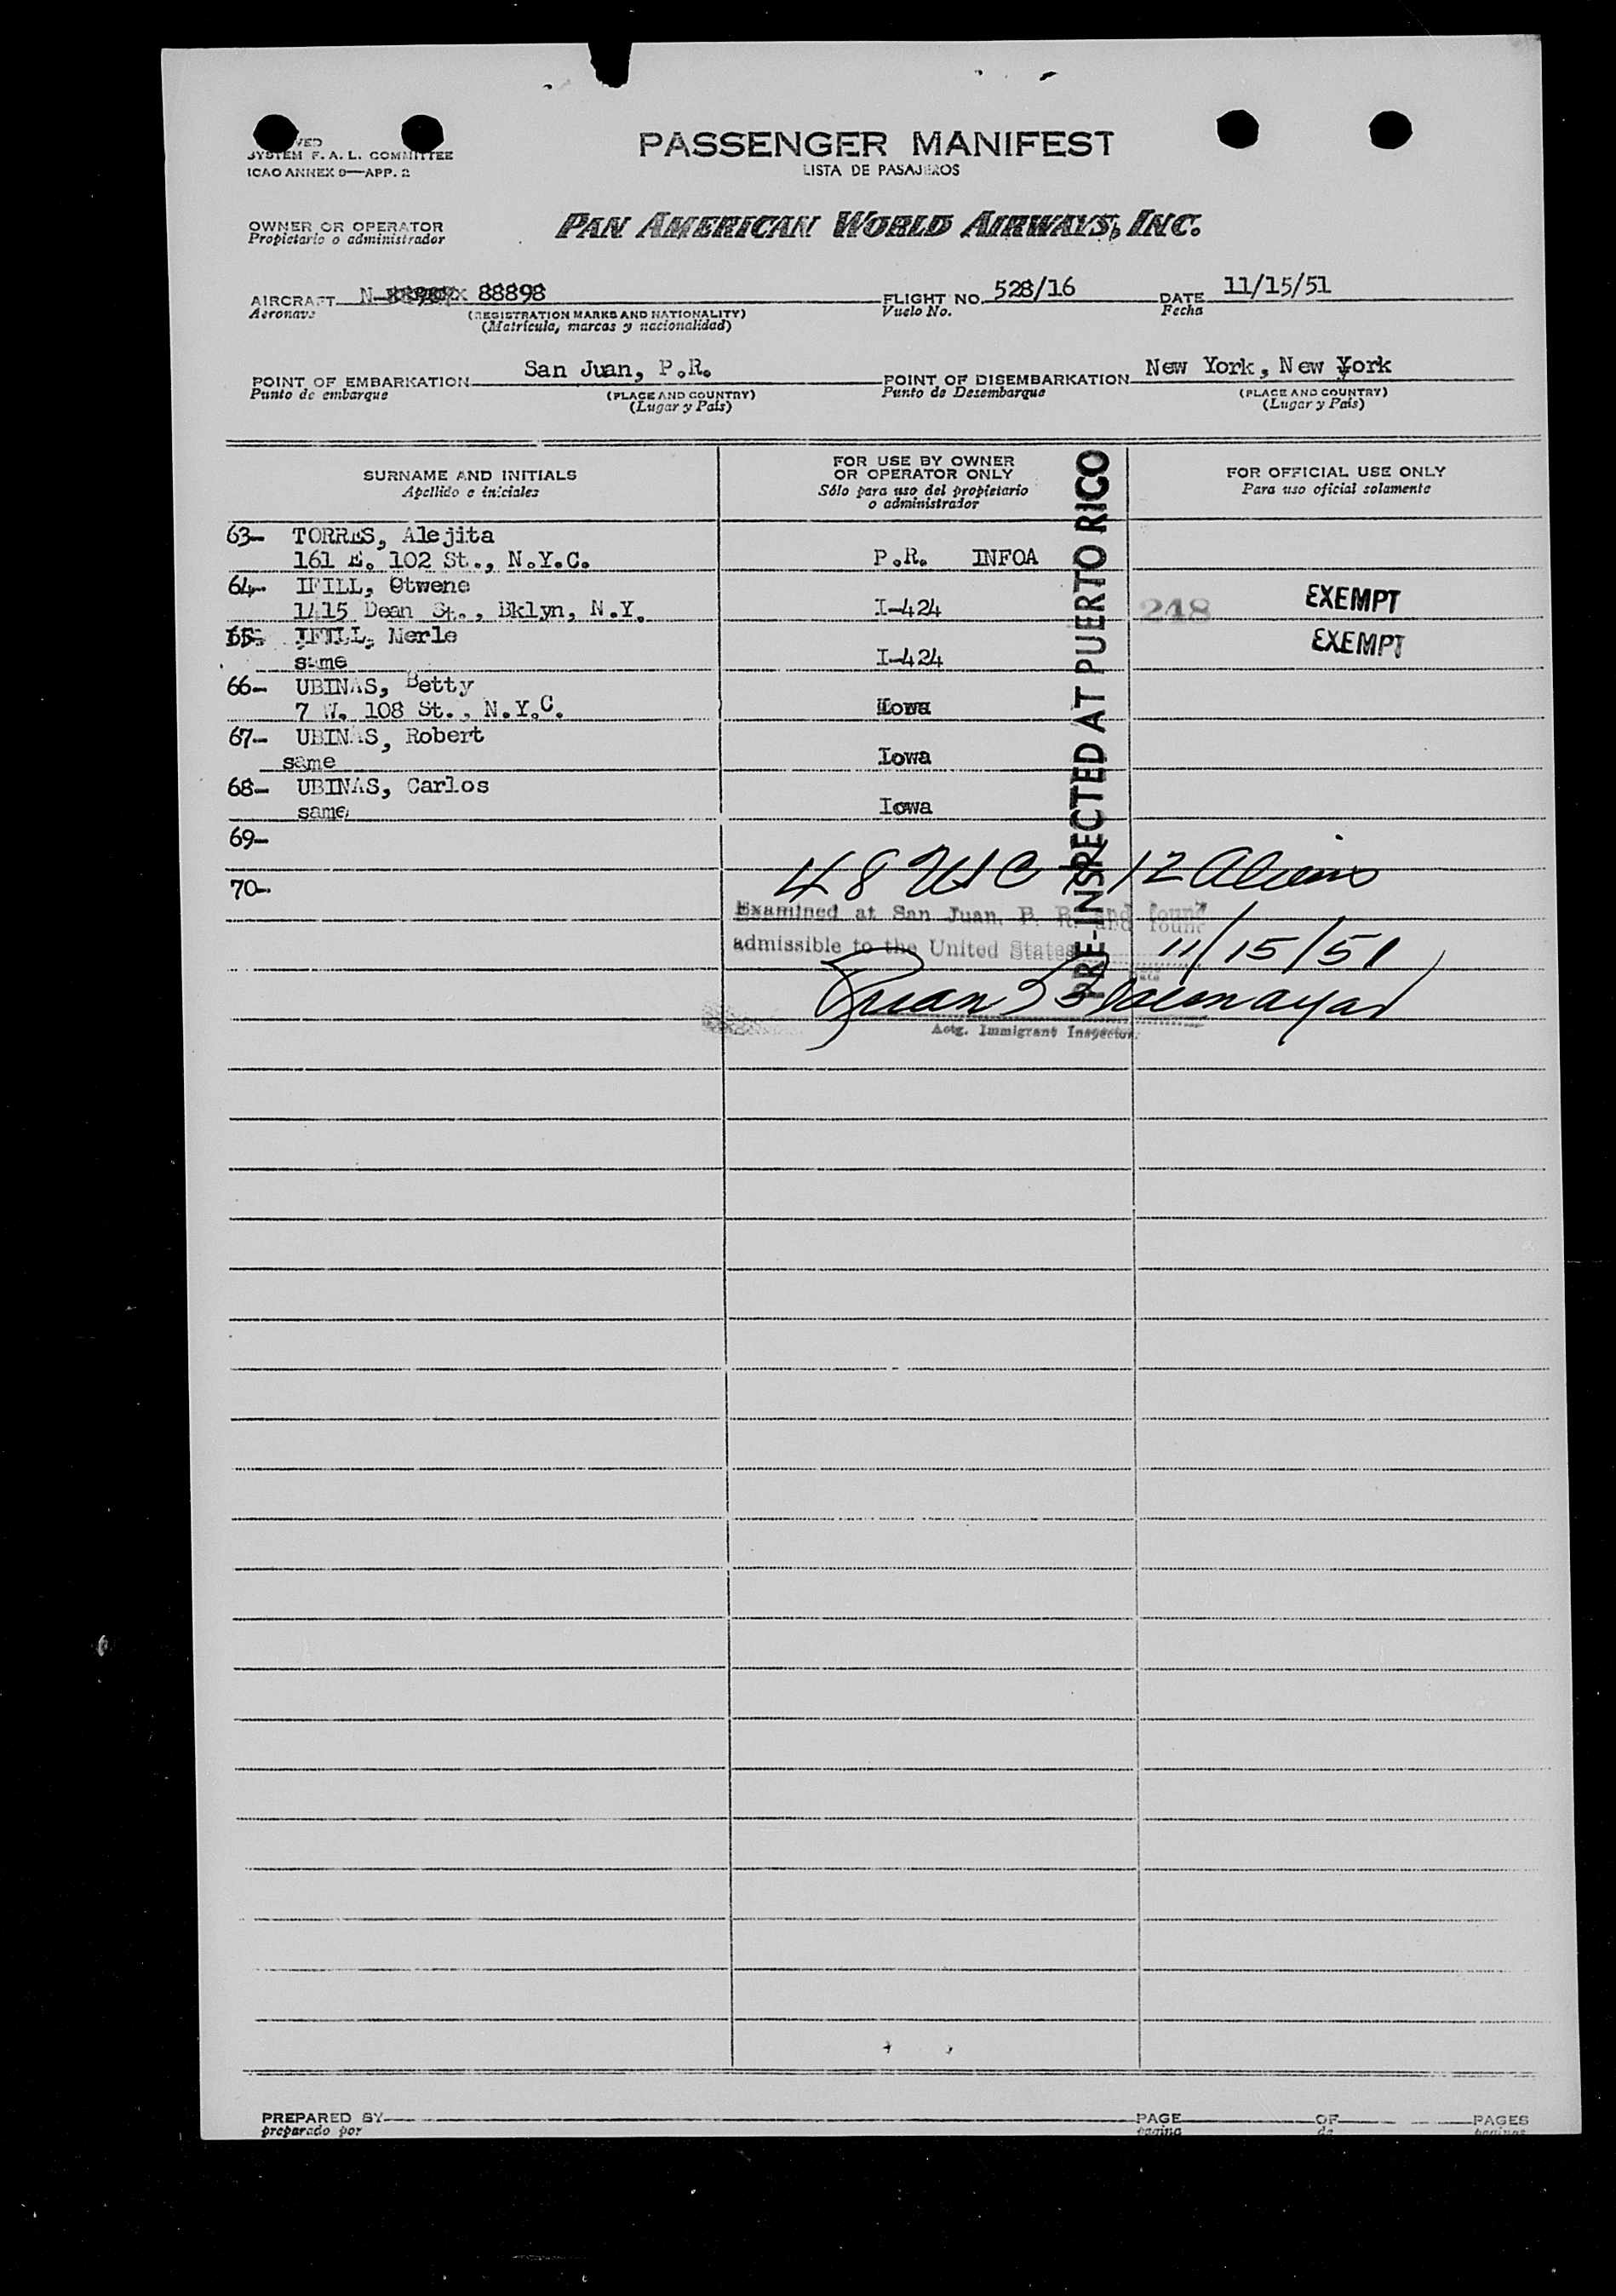 SYSTEM F. A. L. COMMITTEE
ICAO ANNEX 9—APP. 2
PASSENGER MANIFEST
LISTA DE PASAJEROS
OWNER OR OPERATOR
Propietario o administrador
PAN AMERICAN WORLD AIRWAYS, INC.
AIRCRAFT N- 88898
Aeronave
(REGISTRATION MARKS AND NATIONALITY)
(Matrícula, marcas y nacionalidad)
FLIGHT NO. 528/16
Vuelo No.
DATE 11/15/51
Fecha
POINT OF EMBARKATION San Juan, P.R.
Punto de embarque
(PLACE AND COUNTRY)
(Lugar y País)
POINT OF DISEMBARKATION New York, New York
Punto de Desembarque
(PLACE AND COUNTRY)
(Lugar y País)
SURNAME AND INITIALS
Apellido e iniciales
FOR USE BY OWNER
OR OPERATOR ONLY
Sólo para uso del propietario
o administrador
FOR OFFICIAL USE ONLY
Para uso oficial solamente
PRE-INSPECTED AT PUERTO RICO
63- TORRES, Alejita
161 E. 102 St., N.Y.C. P.R. INFOA
64- IFILL, Otwene
1415 Dean St., Bklyn, N.Y. I-424 248 EXEMPT
65- IFILL, Merle EXEMPT
same I-424
66- UBINAS, Betty
7 W. 108 St., N.Y.C. Iowa
67- UBINAS, Robert
same Iowa
68- UBINAS, Carlos
same Iowa
69-
70-
48 USC 12 Aliens
Examined at San Juan, P. R. and found
admissible to the United States 11/15/51
Date
Actg. Immigrant Inspector.
PREPARED BY
preparado por
PAGE OF PAGES
página de páginas